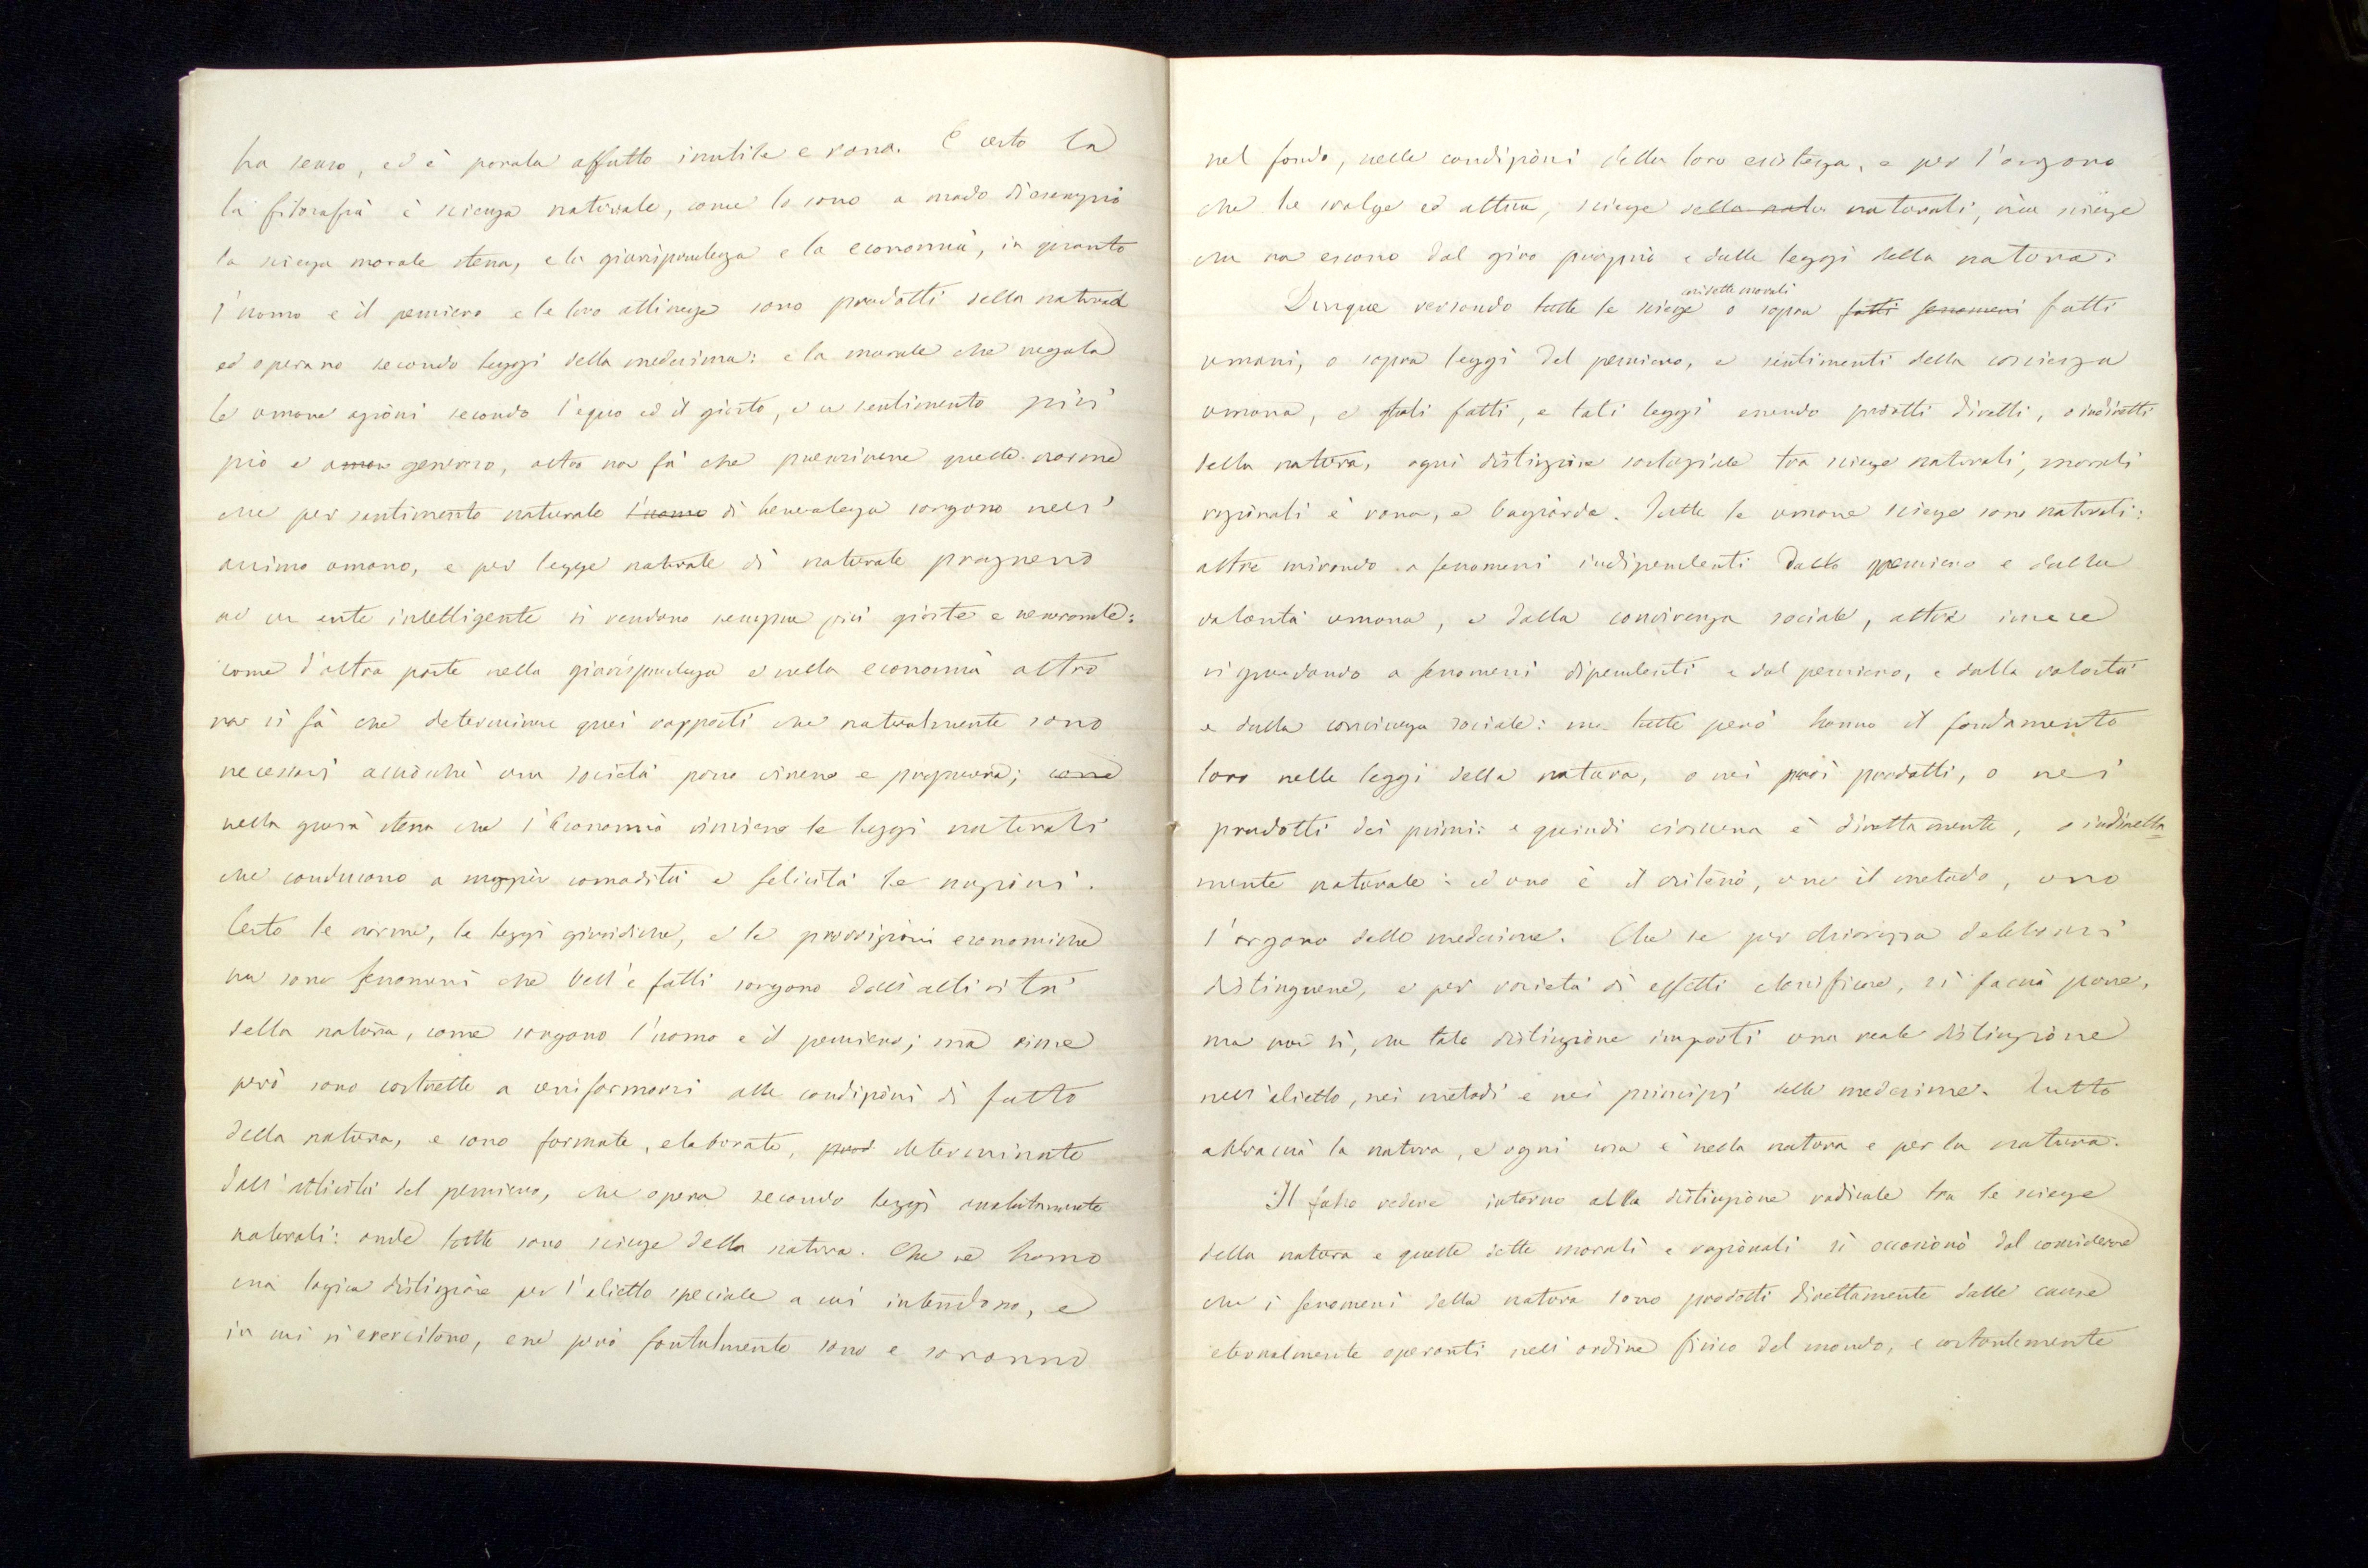 ha senso, ed è parola affatto inutile e vana. E certo la
la filosofia è scienza naturale, come lo sono a modo di esempio
la scienza morale stessa, e la giurisprudenza e la economia, in quanto
l'uomo e il pensiero e le loro attinenze sono prodotti della natura
ed operano secondo leggi della medesima: e la morale che regola
le umane azioni secondo l'equo ed il giusto, e un sentimento più
pio e generoso, altro non fà che prescrivere quelle norme
che per sentimento naturale l'uomo di benevolenza sorgono nell'
animo umano, e per legge naturale di naturale progresso
ad un ente intelligente si rendono sempre più giuste e venerande:
come d'altra parte nella giurisprudenza e nella economia altro
non si fà che determinare quei rapporti che naturalmente sono
necessari acciochè una società possa vivere e prosperare; come
nella guisa stessa che l'Economia rinviene le leggi naturali
che conducono a maggior comodità e felicità le nazioni.
Certo le norme, le leggi giuridiche, e le provvigioni economiche
non sono fenomeni che bell'e fatti sorgono dall'attività
della natura, come sorgono l'uomo e il pensiero; ma
però sono costrette a conformarsi alle condizioni di fatto
della natura, e sono formate, elaborate, determinate
dall'attività del pensiero, che opera secondo leggi assolutamente
naturali: onde tutte sono scienze della natura. Che se hanno
una logica distinzione per l'obietto speciale a cui intendono, e
in cui si esercitano, esse però fontalmente sono e saranno
nel fondo, nelle condizioni della loro esistenza, e per l'organo
che le svolge ed attua, scienze della natu naturali, cioè scienze
che non escono dal giro proprio e dalle leggi della natura.
così dette morali
Dunque versando tutte le scienze o sopra fatti fenomeni fatti
umani, o sopra leggi del pensiero, e sentimenti della coscienza
umana, e tali fatti, e tali leggi essendo prodotti diretti, o indiretti
della natura, ogni distinzione sostanziale tra scienze naturali, morali
razionali è vana, e bugiarda. Tutte le umane scienze sono naturali:
altre mirando a fenomeni indipendenti dallo pensiero e dalla
volontà umana, e dalla convivenza sociale, altre invece
riguardando a fenomeni dipendenti e dal pensiero, e dalla volontà
e dalla convivenza sociale: ma tutte però hanno il fondamento
loro nelle leggi della natura, o nei suoi prodotti, o nei
prodotti dei primi: e quindi ciascuna è direttamente, o indiretta
mente naturale: ed uno è il criterio, uno il metodo, uno
l'organo delle medesime. Che se per chiarezza debbonsi
distinguere, e per varietà di effetti classificare, si faccia pure,
ma non sì, che tale distinzione importi una reale distinzione
nell'obietto, nei metodi e nei principj delle medesime. Tutto
abbraccia la natura, e ogni cosa è nella natura e per la natura.
Il falso vedere intorno alla distinzione radicale tra le scienze
della natura e quelle dette morali e razionali si occasionò dal considerare
che i fenomeni della natura sono prodotti direttamente dalle cause
eternalmente operanti nell'ordine fisico del mondo, e costantemente